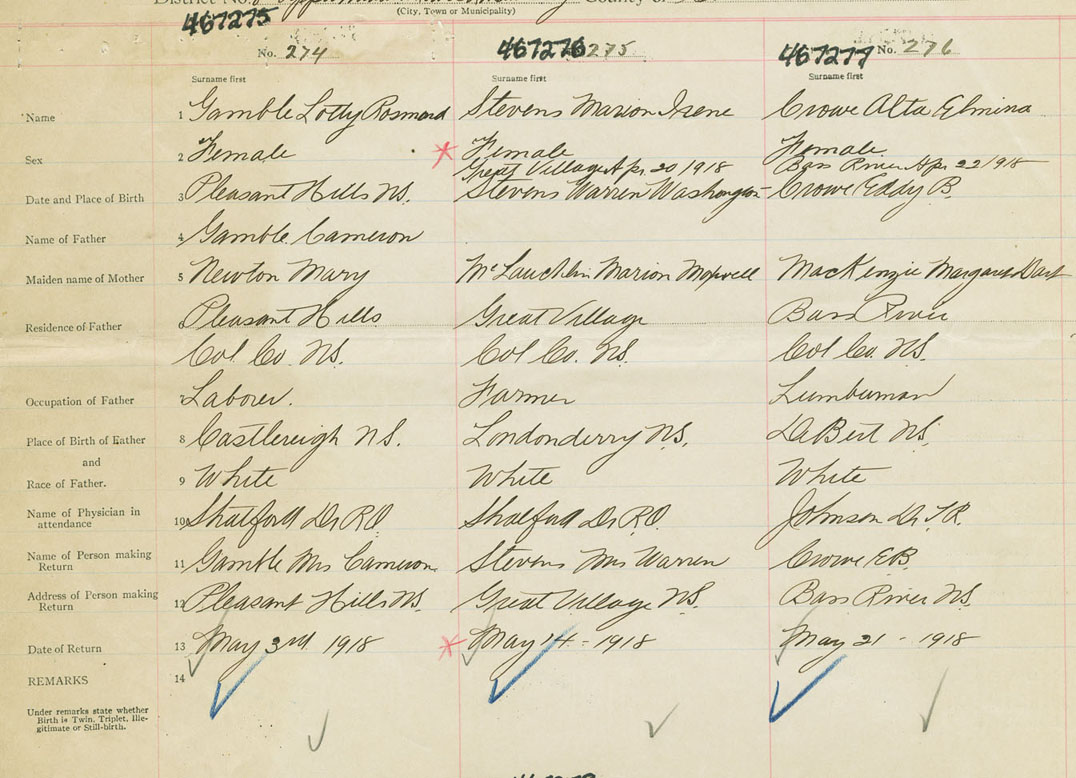 District No. County of
(City, Town or Municipality)
467275 467276 467277
No. 274 275 No. 276
Surname first Surname first Surname first
Name 1 Gamble Lotty Rosmond Stevens Marion Irene Crowe Alta Elmina
Sex 2 Female Female Female
Great Village Apr 20/1918 Bass River Apr 22/1918
Date and Place of Birth 3 Pleasant Hills N.S. Stevens Warren Washington Crowe Eddy B.
Name of Father 4 Gamble Cameron
Maiden name of Mother 5 Newton Mary McLauchlin Marion Maxwell MacKenzie Margaret
Residence of Father 6 Pleasant Hills Great Village Bass River
Col Co. N.S. Col Co. N.S. Col Co. N.S.
Occupation of Father 7 Laborer. Farmer Lumberman
Place of Birth of Father 8 Castlereigh N.S. Londonderry N.S. DeBert N.S.
and
Race of Father. 9 White White White
Name of Physician in
attendance 10 Shatford Dr R.O. Shatford Dr R.O. Johnson Dr T.R.
Name of Person making
Return 11 Gamble Mrs Cameron Stevens Mrs Warren Crowe E.B.
Address of Person making
Return 12 Pleasant Hills N.S. Great Village N.S. Bass River N.S.
Date of Return 13 May 3rd 1918 May 14 - 1918 May 21 - 1918
REMARKS 14
Under remarks state whether
Birth is Twin, Triplet, Ille-
gitimate or Still-birth.